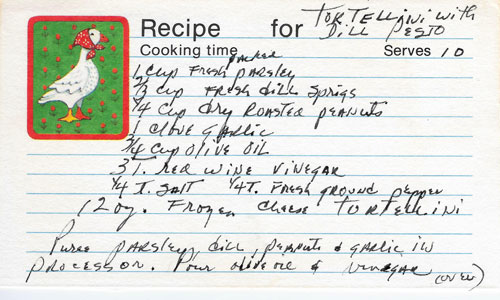 Recipe for Tortellini with
Dill Pesto
Cooking time Serves 10
1 Cup Fresh packed parsley
2/3 Cup Fresh dill sprigs
1/4 Cup dry roasted peanuts
1 clove garlic
3/4 cup olive oil
3 T. red wine vinegar
1/4 T. salt 1/4 T. fresh ground pepper
12 oz. Frozen cheese tortellini
Puree parsley, dill, peanuts & garlic in
processor. Pour olive oil & vinegar
(over)